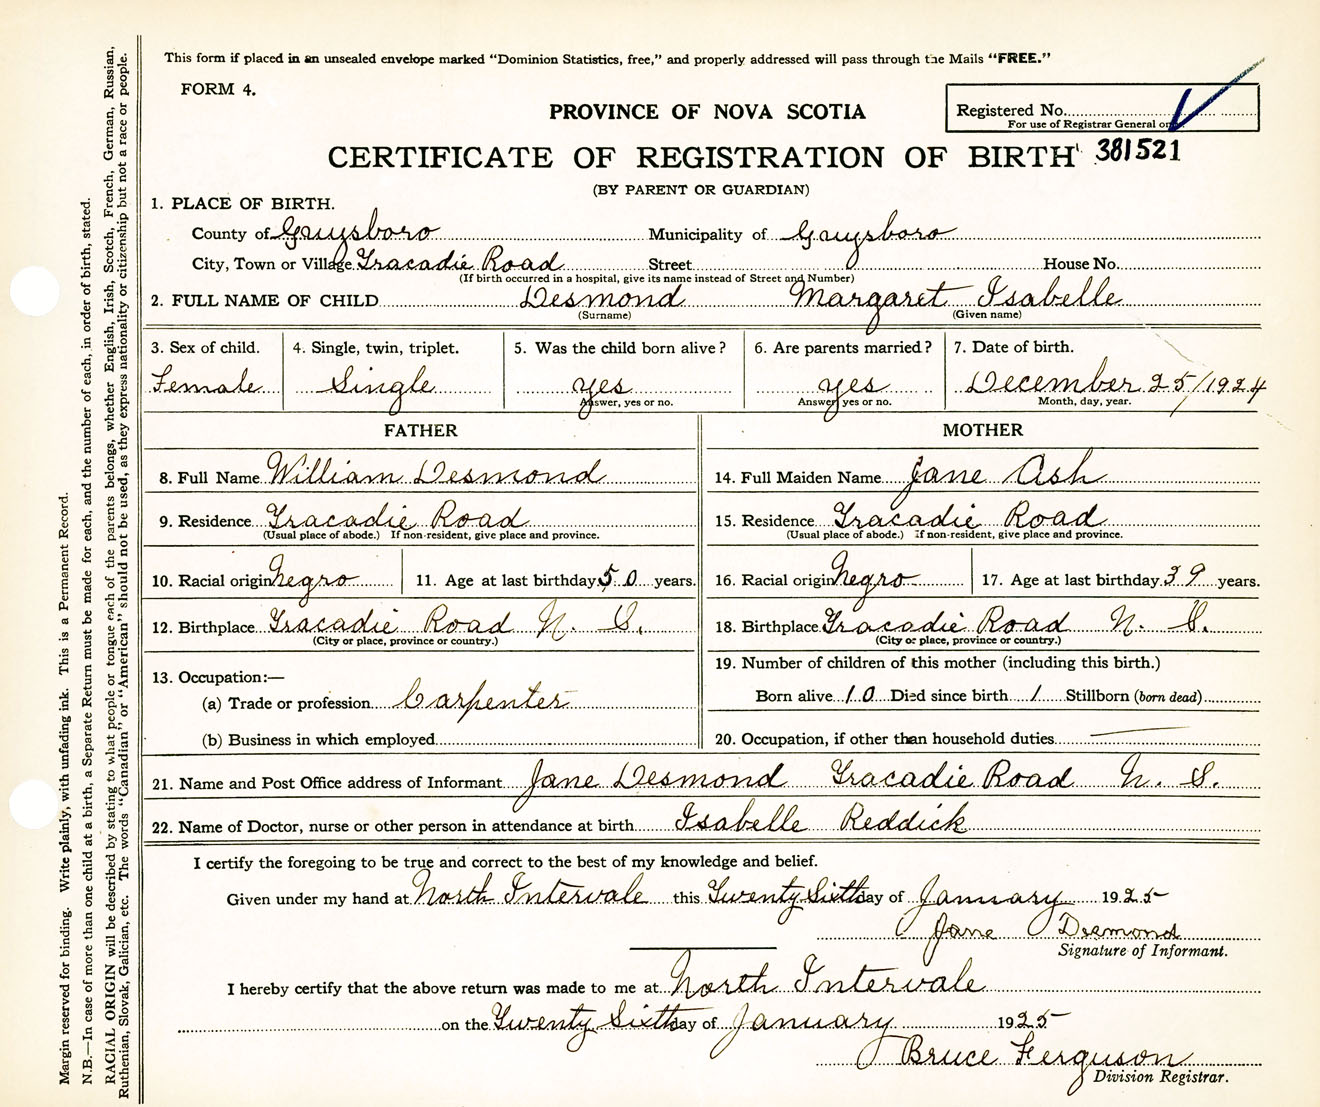 This form if placed in an unsealed envelope marked "Dominion Statistics, free," and properly addressed will pass through the Mails "FREE."
FORM 4.
PROVINCE OF NOVA SCOTIA
Registered No.
For use of Registrar General only.
CERTIFICATE OF REGISTRATION OF BIRTH 381521
(BY PARENT OR GUARDIAN)
1. PLACE OF BIRTH.
County of Guysboro Municipality of Guysboro
City, Town or Village Tracadie Road Street House No.
(If birth occurred in a hospital, give its name instead of Street and Number)
2. FULL NAME OF CHILD Desmond Margaret Isabelle
(Surname) (Given name)
3. Sex of child. 4. Single, twin, triplet. 5. Was the child born alive? 6. Are parents married? 7. Date of birth.
Female Single yes yes December 25/1924
Answer, yes or no. Answer, yes or no. Month, day, year.
FATHER MOTHER
8. Full Name William Desmond 14. Full Maiden Name Jane Ash
9. Residence Tracadie Road 15. Residence Tracadie Road
(Usual place of abode.) If non-resident, give place and province. (Usual place of abode.) If non-resident, give place and province.
10. Racial origin Negro 11. Age at last birthday 50 years. 16. Racial origin Negro 17. Age at last birthday 39 years.
12. Birthplace Tracadie Road N. S. 18. Birthplace Tracadie Road N. S.
(City or place, province or country.) (City or place, province or country.)
13. Occupation:— 19. Number of children of this mother (including this birth.)
(a) Trade or profession Carpenter Born alive 10 Died since birth 1 Stillborn (born dead)
(b) Business in which employed 20. Occupation, if other than household duties
21. Name and Post Office address of Informant Jane Desmond Tracadie Road N. S.
22. Name of Doctor, nurse or other person in attendance at birth Isabelle Reddick
I certify the foregoing to be true and correct to the best of my knowledge and belief.
Given under my hand at North Intervale this Twenty Sixth day of January 1925
Jane Desmond
Signature of Informant.
I hereby certify that the above return was made to me at North Intervale
on the Twenty Sixth day of January 1925
Bruce Ferguson
Division Registrar.
Margin reserved for binding. Write plainly, with unfading ink. This is a Permanent Record.
N.B.—In case of more than one child at a birth, a Separate Return must be made for each, and the number of each, in order of birth, stated.
RACIAL ORIGIN will be described by stating to what people or tongue each of the parents belongs, whether English, Irish, Scotch, French, German, Russian,
Ruthenian, Slovak, Galician, etc. The words "Canadian" or "American" should not be used, as they express nationality or citizenship but not a race or people.